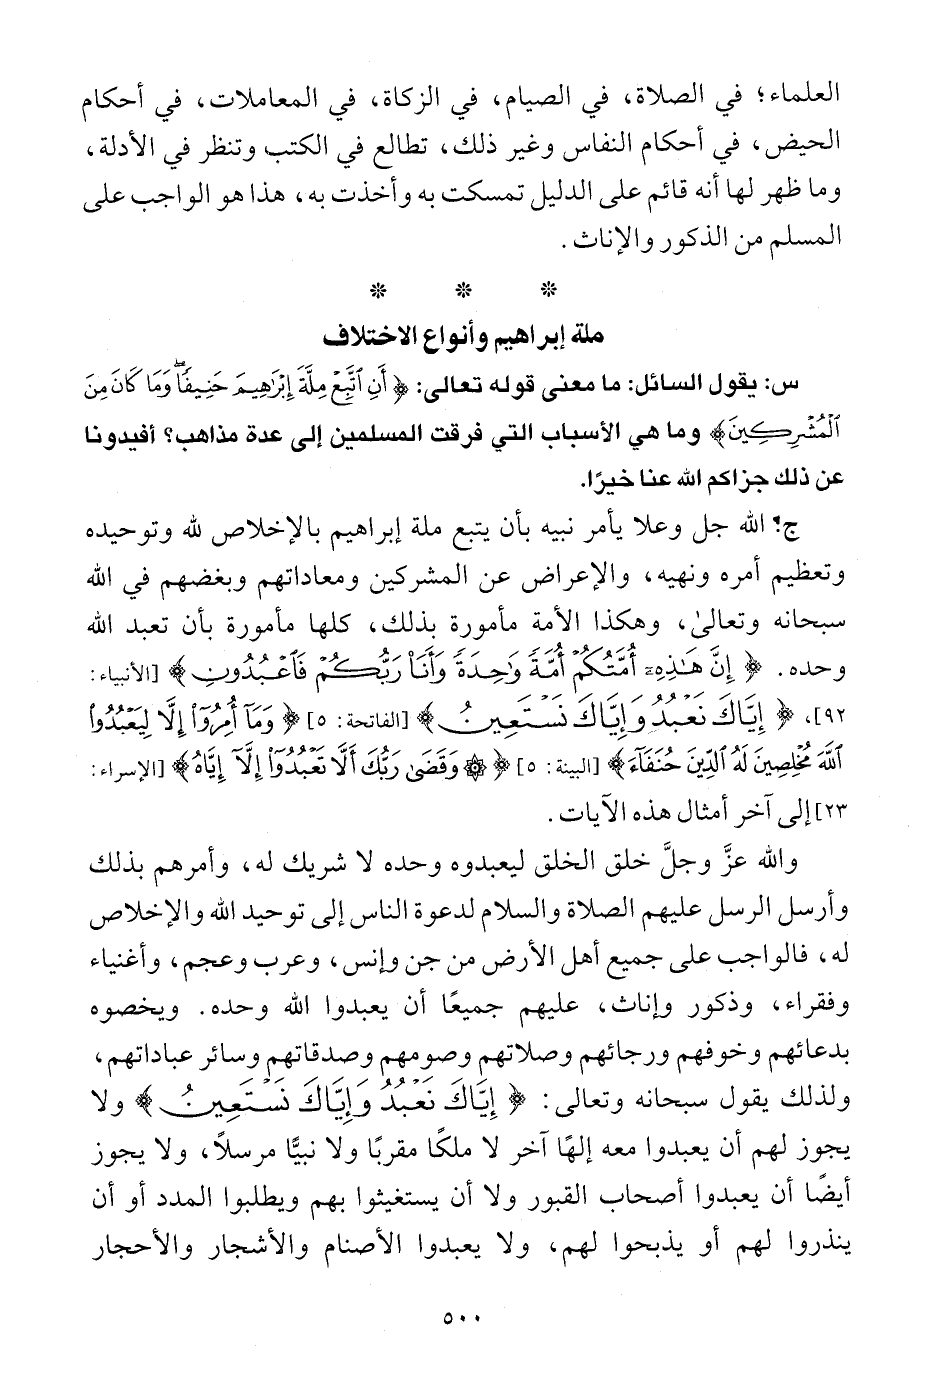 العلماء؛ في الصلاة، في الصيام، في الزكاة، في المعاملات، في أحكام
الحيض، في أحكام النفاس وغير ذلك، تطالع في الكتب وتنظر في الأدلة،
وما ظهر لها أنه قائم على الدليل تمسكت به وأخذت به، هذا هو الواجب على
المسلم من الذكور والإناث.
* * *
ملة إبراهيم وأنواع الاختلاف
س: يقول السائل: ما معنى قوله تعالى: ﴿أَنِ ٱتَّبِعْ مِلَّةَ إِبْرَٰهِيمَ حَنِيفًا ۖ وَمَا كَانَ مِنَ
ٱلْمُشْرِكِينَ﴾ وما هي الأسباب التي فرقت المسلمين إلى عدة مذاهب؟ أفيدونا
عن ذلك جزاكم الله عنا خيرًا.
ج: الله جل وعلا يأمر نبيه بأن يتبع ملة إبراهيم بالإخلاص لله وتوحيده
وتعظيم أمره ونهيه، والإعراض عن المشركين ومعاداتهم وبغضهم في الله
سبحانه وتعالىٰ، وهكذا الأمة مأمورة بذلك، كلها مأمورة بأن تعبد الله
وحده. ﴿إِنَّ هَٰذِهِۦٓ أُمَّتُكُمْ أُمَّةً وَٰحِدَةً وَأَنَا۠ رَبُّكُمْ فَٱعْبُدُونِ﴾ [الأنبياء:
٩٢]، ﴿إِيَّاكَ نَعْبُدُ وَإِيَّاكَ نَسْتَعِينُ﴾ [الفاتحة: ٥] ﴿وَمَآ أُمِرُوٓا۟ إِلَّا لِيَعْبُدُوا۟
ٱللَّهَ مُخْلِصِينَ لَهُ ٱلدِّينَ حُنَفَآءَ﴾ [البينة: ٥] ﴿۞ وَقَضَىٰ رَبُّكَ أَلَّا تَعْبُدُوٓا۟ إِلَّآ إِيَّاهُ﴾ [الإسراء:
٢٣] إلى آخر أمثال هذه الآيات.
والله عزَّ وجلَّ خلق الخلق ليعبدوه وحده لا شريك له، وأمرهم بذلك
وأرسل الرسل عليهم الصلاة والسلام لدعوة الناس إلى توحيد الله والإخلاص
له، فالواجب على جميع أهل الأرض من جن وإنس، وعرب وعجم، وأغنياء
وفقراء، وذكور وإناث، عليهم جميعًا أن يعبدوا الله وحده. ويخصوه
بدعائهم وخوفهم ورجائهم وصلاتهم وصومهم وصدقاتهم وسائر عباداتهم،
ولذلك يقول سبحانه وتعالى: ﴿إِيَّاكَ نَعْبُدُ وَإِيَّاكَ نَسْتَعِينُ﴾ ولا
يجوز لهم أن يعبدوا معه إلهًا آخر لا ملكًا مقربًا ولا نبيًّا مرسلاً، ولا يجوز
أيضًا أن يعبدوا أصحاب القبور ولا أن يستغيثوا بهم ويطلبوا المدد أو أن
ينذروا لهم أو يذبحوا لهم، ولا يعبدوا الأصنام والأشجار والأحجار
٥٠٠